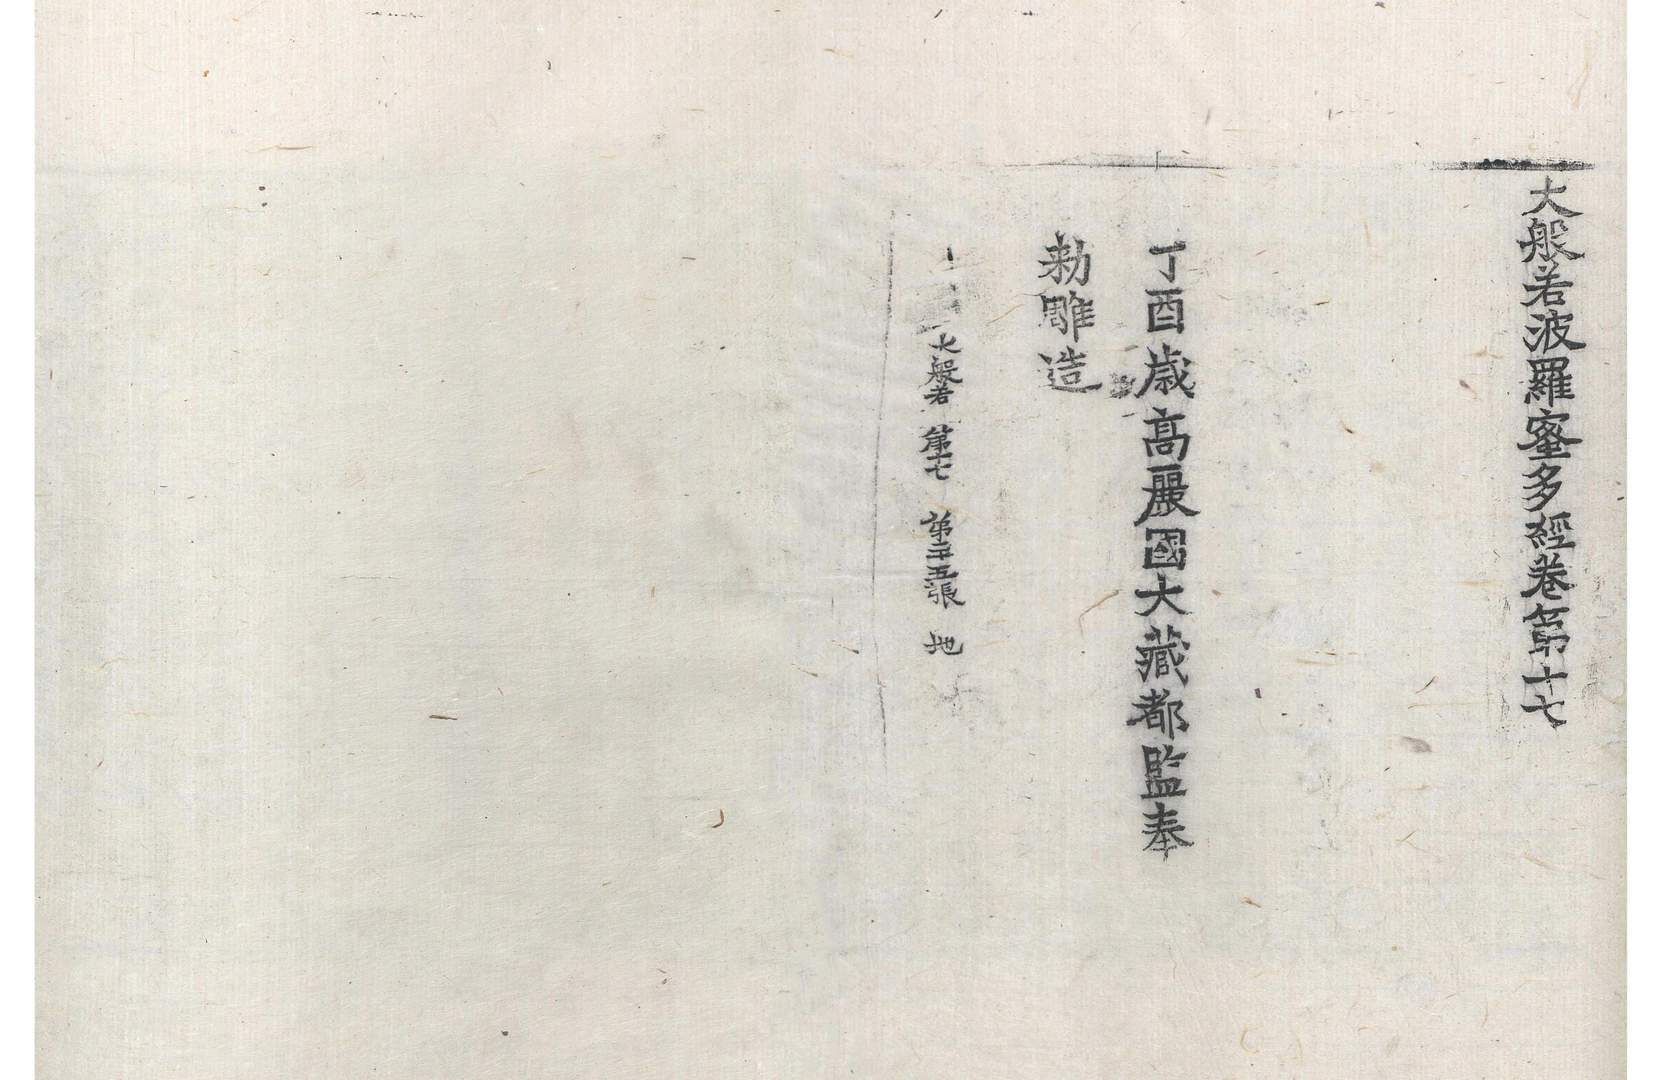 大般若波羅蜜多經卷第十七
丁酉歲高麗國大藏都監奉
勅雕造
大般若 第十七 第二十五張 地